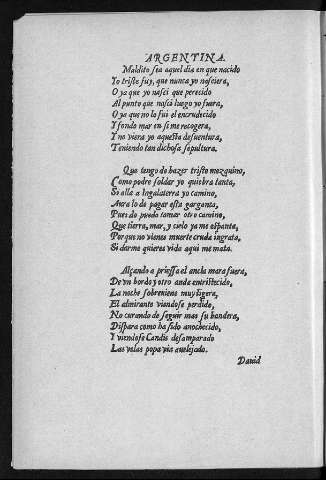 ARGENTINA.
Maldito sea aquel dia en que nacido
Yo triste fuy, que nunca yo nasciera,
O ya que yo nasci que perecido
Al punto que nasci luego yo fuera,
O ya que no lo fui el encrudecido
Y fondo mar en si me recogera,
Y no viera yo aquesta desuentura,
Teniendo tan dichosa sepultura.
Que tengo do hazer triste mezquino,
Como podre soldar yo quiebra tanta,
Si alla a Ingalaterra yo camino,
Aura lo de pagar esta garganta,
Pues do puedo tomar otro camino,
Que tierra, mar, y cielo ya me espanta,
Porque no vienes muerte cruda ingrata,
Si darme quieres vida aqui me mata.
Alçando a priessa el ancla mara fuera,
De vn bordo y otro anda entristecido,
La noche sobreuiene muy ligera,
El almirante viendose perdido,
No curando de seguir mas su bandera,
Dispara como ha sido anochecido,
Y viendose Candis desamparado
Las velas popa via auelejado.
David